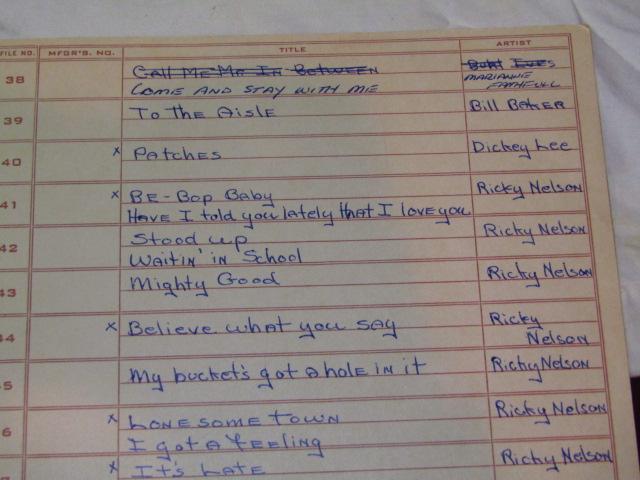 FILE NO. MFGR'S. NO. TITLE ARTIST
38 Call Me Mr In Between Burl Ives
Come and Stay with Me Marianne Faithfull
39 To The Aisle Bill Baker
40 x Patches Dickey Lee
41 x Be-Bop Baby Ricky Nelson
Have I told you lately that I love you
42 Stood up Ricky Nelson
Waitin' in School
43 Mighty Good Ricky Nelson
44 x Believe what you say Ricky Nelson
5 My bucket's got a hole in it Ricky Nelson
6 x Lonesome Town Ricky Nelson
I got a feeling
x It's Late Ricky Nelson